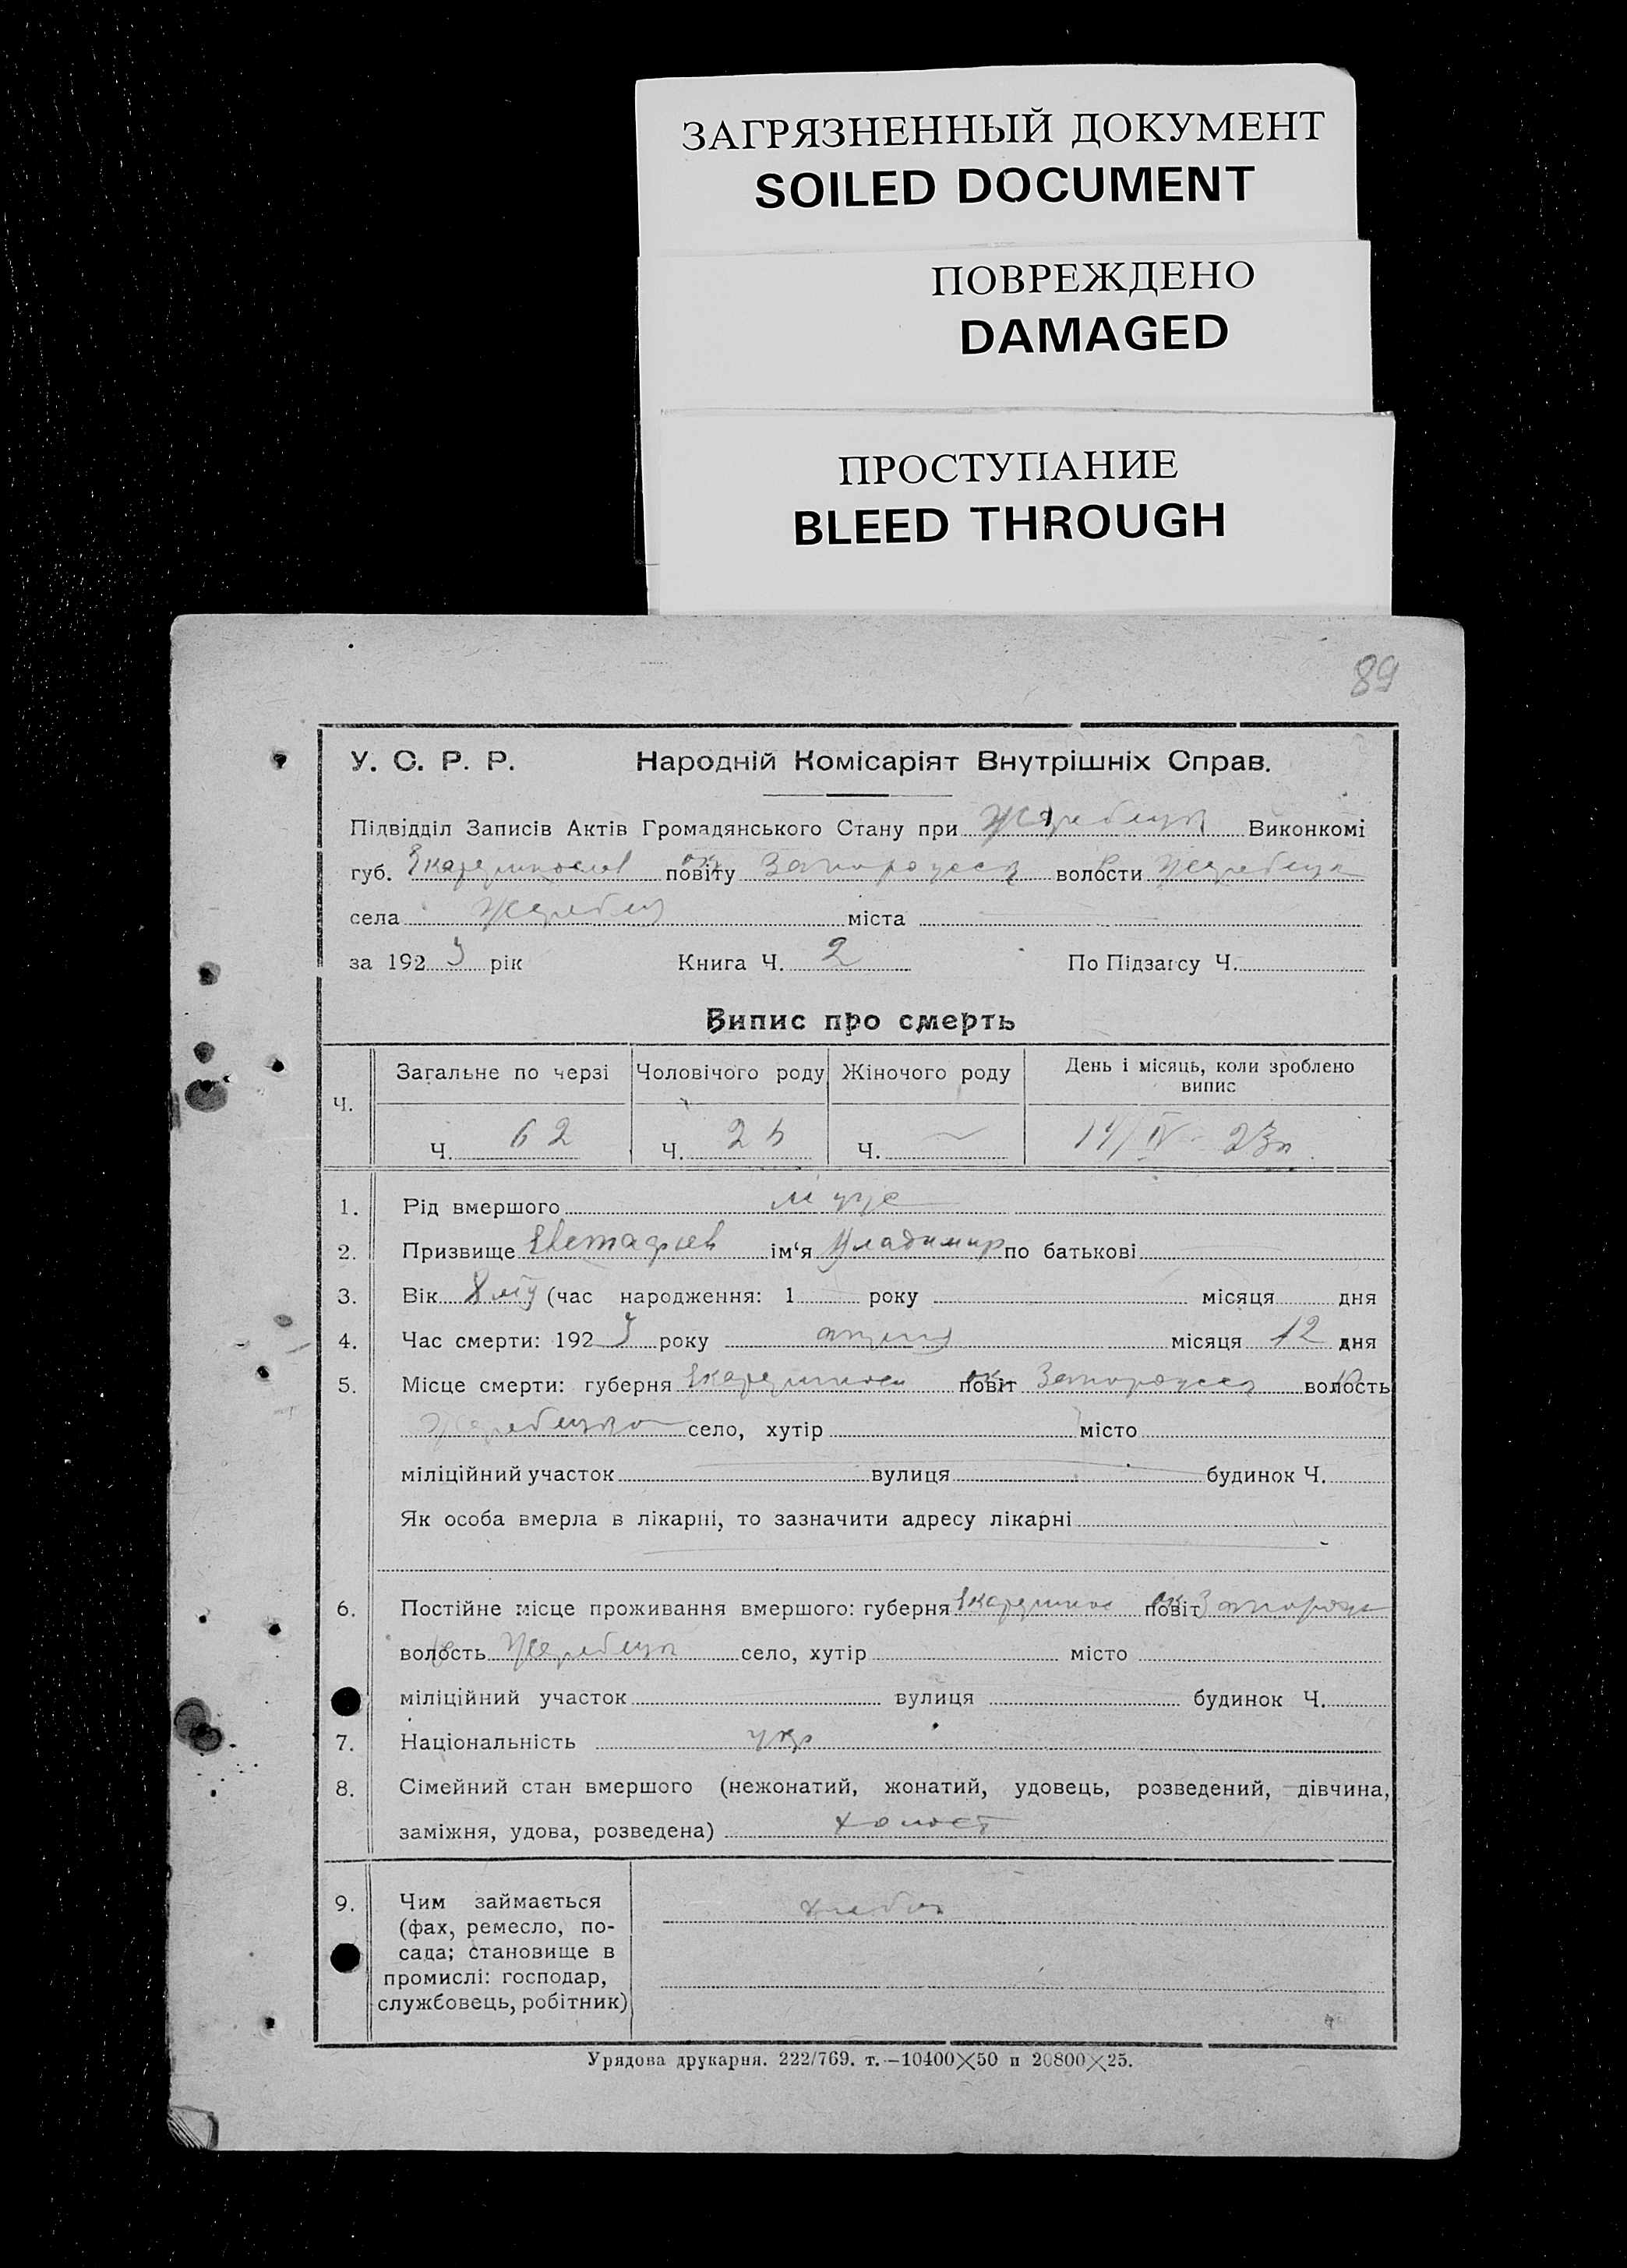 ЗАГРЯЗНЕННЫЙ ДОКУМЕНТ
SOILED DOCUMENT
ПОВРЕЖДЕНО
DAMAGED
ПРОСТУПАНИЕ
BLEED THROUGH
89
У. С. Р. Р. Народній Комісаріят Внутрішніх Справ.
Підвідділ Записів Актів Громадянського Стану при Виконкомі
губ. повіту волости
села міста
за 1923 рік Книга Ч. 2 По Підзагсу Ч.
Випис про смерть
Ч. Загальне по черзі Чоловічого роду Жіночого роду День і місяць, коли зроблено випис
Ч. 62 Ч. Ч. IV 23
1. Рід вмершого муж
2. Призвище ім'я Владимир по батькові
3. Вік (час народження: 1 року місяця дня
4. Час смерти: 1923 року місяця 12 дня
5. Місце смерти: губерня повіт волость
село, хутір місто
міліційний участок вулиця будинок Ч.
Як особа вмерла в лікарні, то зазначити адресу лікарні
6. Постійне місце проживання вмершого: губерня повіт
волость село, хутір місто
міліційний участок вулиця будинок Ч.
7. Національність укр
8. Сімейний стан вмершого (нежонатий, жонатий, удовець, розведений, дівчина,
заміжня, удова, розведена) холост
9. Чим займається
(фах, ремесло, по-
сада; становище в
промислі: господар,
службовець, робітник)
Урядова друкарня. 222/769. т.—10400×50 п 20800×25.